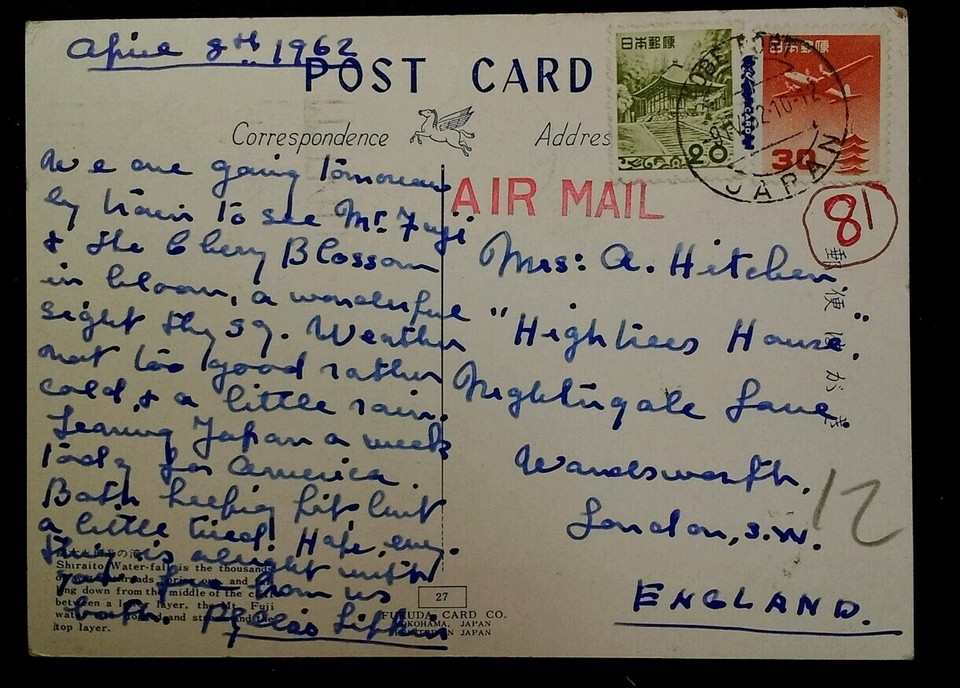 April 8th 1962
POST CARD
Correspondence
Address
日本郵便
20
日本郵便
30
JAPAN
AIR MAIL
81
郵便はがき
We are going tomorrow
by train to see Mt. Fuji
& the Cherry Blossom
in bloom, a wonderful
sight they say. Weather
not too good rather
cold, & a little rain.
Leaving Japan a week
today for America.
Both keeping fit but
a little tired! Hope every-
thing is alright with
from us
both.
Mrs: A. Hitchen
"Hightrees House."
Nightingale Lane
Wandsworth,
London, S.W. 12
ENGLAND.
Shiraito Water-fall is the thousands
down from the middle of the
between a layer, the Mt. Fuji
top layer.
27
FUKUDA CARD CO.
YOKOHAMA, JAPAN
IN JAPAN